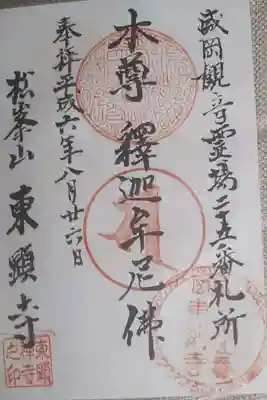 盛岡観音霊場二十五番札所
本尊 釋迦牟尼佛
奉拝 平成六年八月廿六日
松峯山 東顕寺
東顕
禅寺
之印